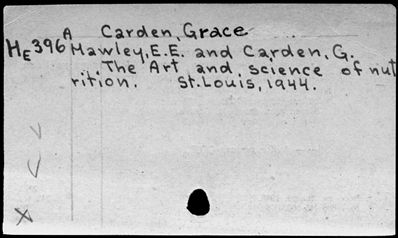 A Carden, Grace
HE396 Hawley, E.E. and Carden, G.
The Art and science of nut
rition. St. Louis, 1944.